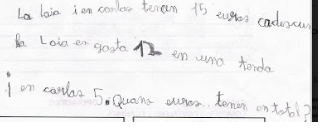 La Laia i en carlos tenen 15 euros cadascun
la Laia en gasta 12 en una tenda
i en carlos 5. Quans euros tenen en total?